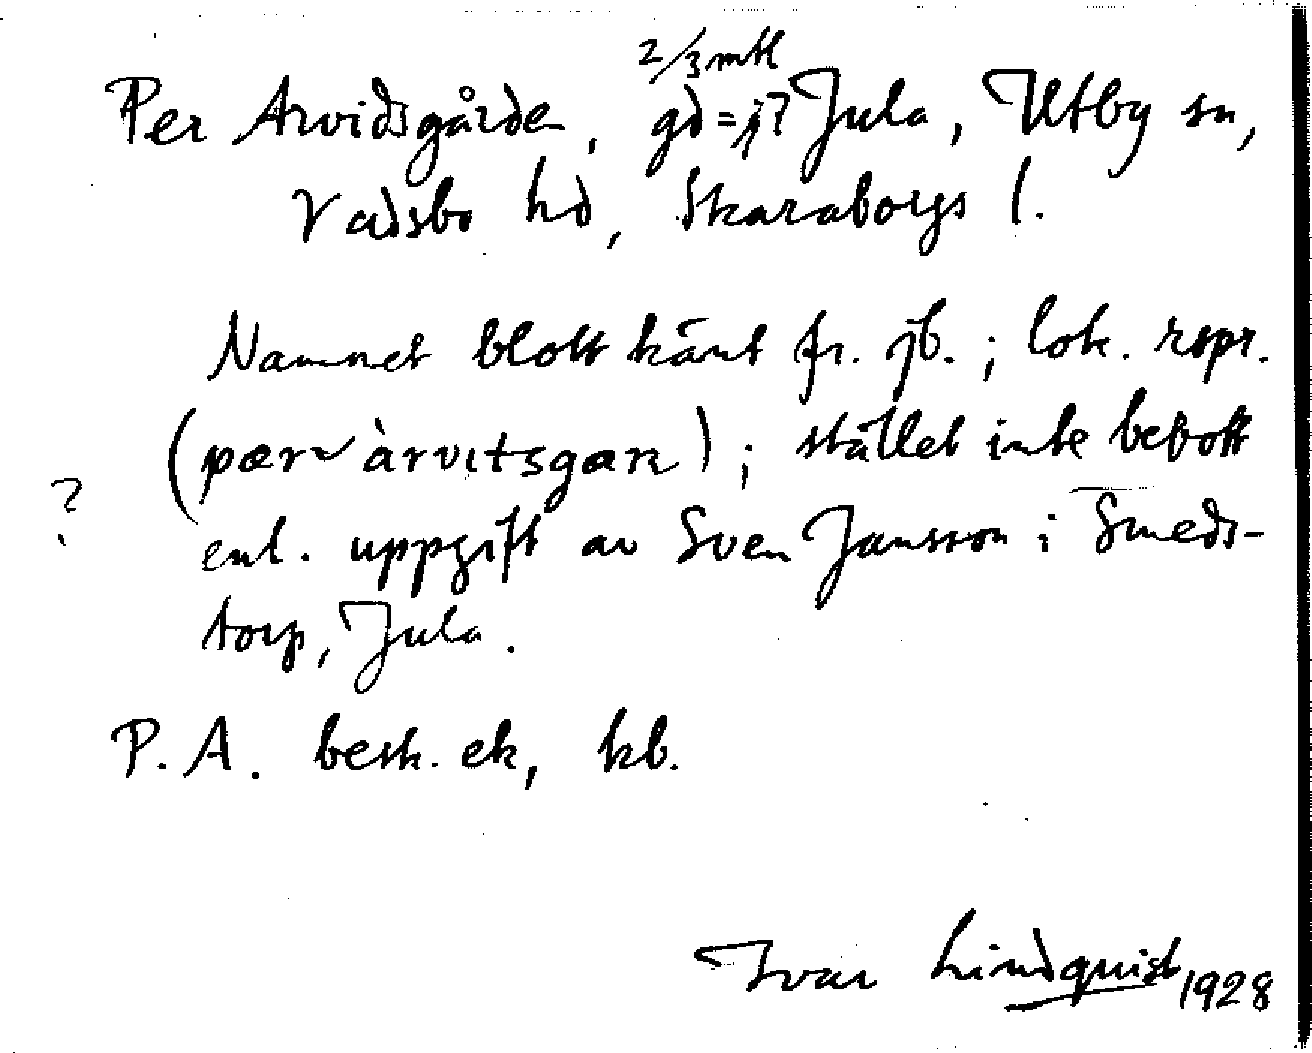 2/3 mtl
Per Arvidsgården, gd = j? Jula, Utby sn,
Vadsbo hd, Skaraborgs l.
Namnet blott känt fr. jb. ; lok. repr.
(pærvàrvıtsgarn) ; stället inte bebott
?
enl. uppgift av Sven Jansson i Smeds-
torp, Jula.
P. A. besk. ek, kb.
Ivar Lindquist 1928